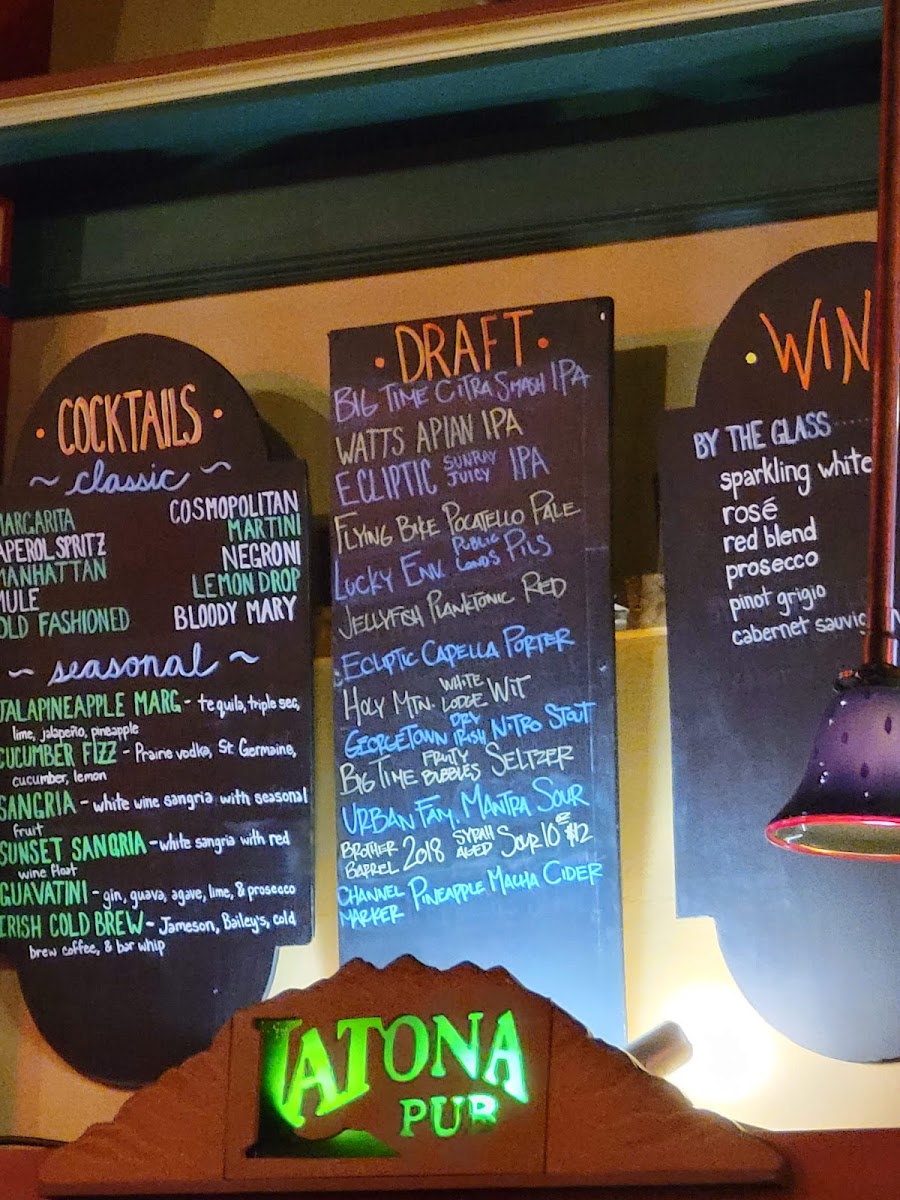 COCKTAILS
~ classic ~
MARGARITA
APEROL SPRITZ
MANHATTAN
MULE
OLD FASHIONED
COSMOPOLITAN
MARTINI
NEGRONI
LEMON DROP
BLOODY MARY
~ seasonal ~
JALAPINEAPPLE MARG - tequila, triple sec,
lime, jalapeño, pineapple
CUCUMBER FIZZ - Prairie vodka, St. Germaine,
cucumber, lemon
SANGRIA - white wine sangria with seasonal
fruit
SUNSET SANGRIA - white sangria with red
wine float
GUAVATINI - gin, guava, agave, lime, & prosecco
IRISH COLD BREW - Jameson, Bailey's, cold
brew coffee, & bar whip
• DRAFT •
BIG TIME CITRA SMASH IPA
WATTS APIAN IPA
ECLIPTIC SUNRAY JUICY IPA
FLYING BIKE POCATELLO PALE
LUCKY ENV. PUBLIC LANDS PILS
JELLYFISH PLANKTONIC RED
ECLIPTIC CAPELLA PORTER
HOLY MTN. WHITE LODGE WIT
GEORGETOWN DRY IRISH NITRO STOUT
BIG TIME FRUITY BUBBLES SELTZER
URBAN FAM. MANTRA SOUR
BROTHER BARREL 2018 SYRAH AGED SOUR 10oz $12
CHANNEL MARKER PINEAPPLE MACHA CIDER
• WIN
BY THE GLASS
sparkling white
rosé
red blend
prosecco
pinot grigio
cabernet sauvign
LATONA
PUB